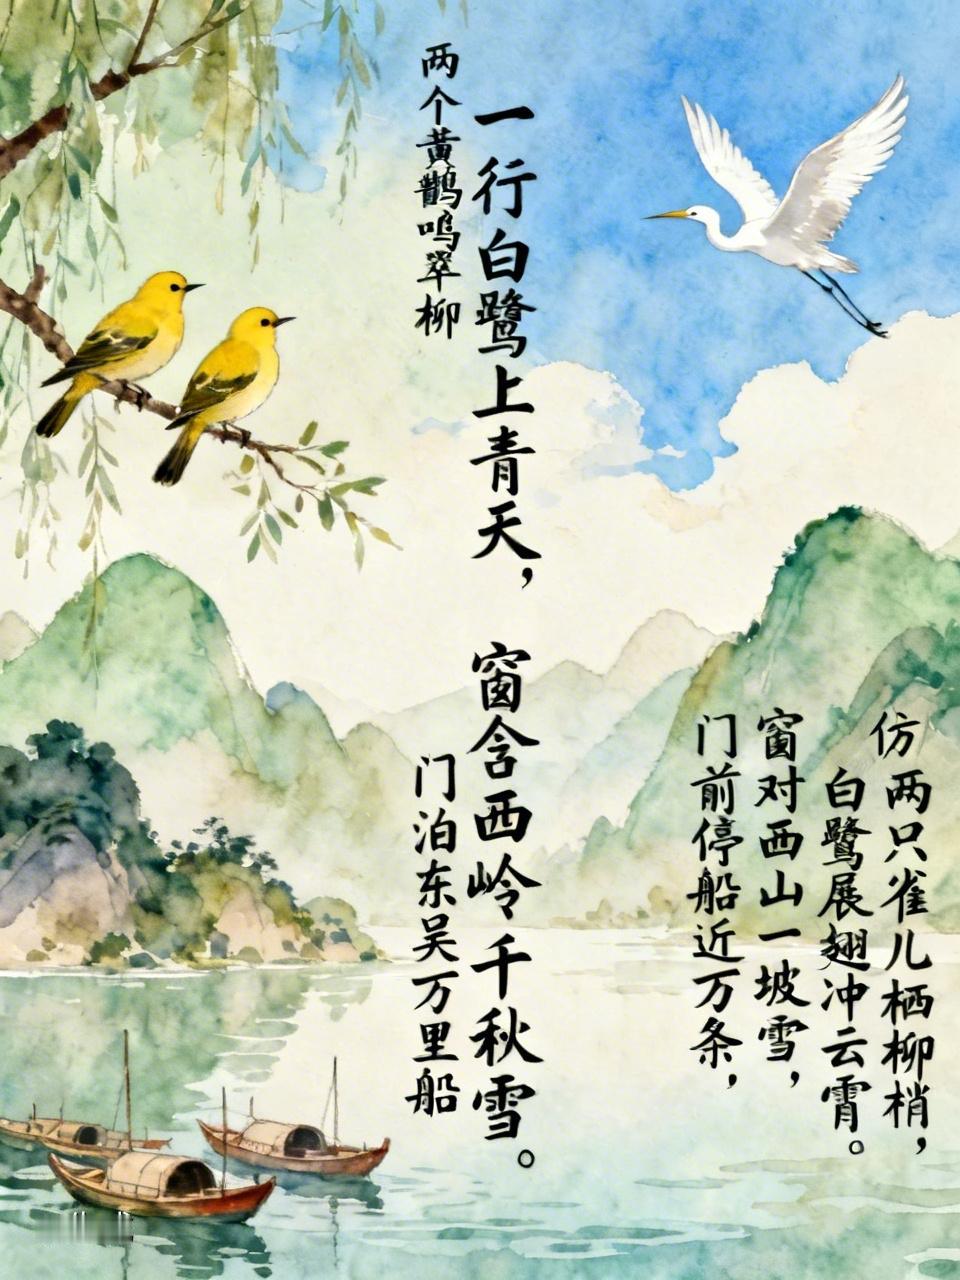 两个黄鹂呜翠柳
一行白鹭上青天，
窗含西岭千秋雪。
门泊东吴万里船
仿两只雀儿栖柳梢，
白鹭展翅冲云霄。
窗对西山一坡雪，
门前停船近万条，